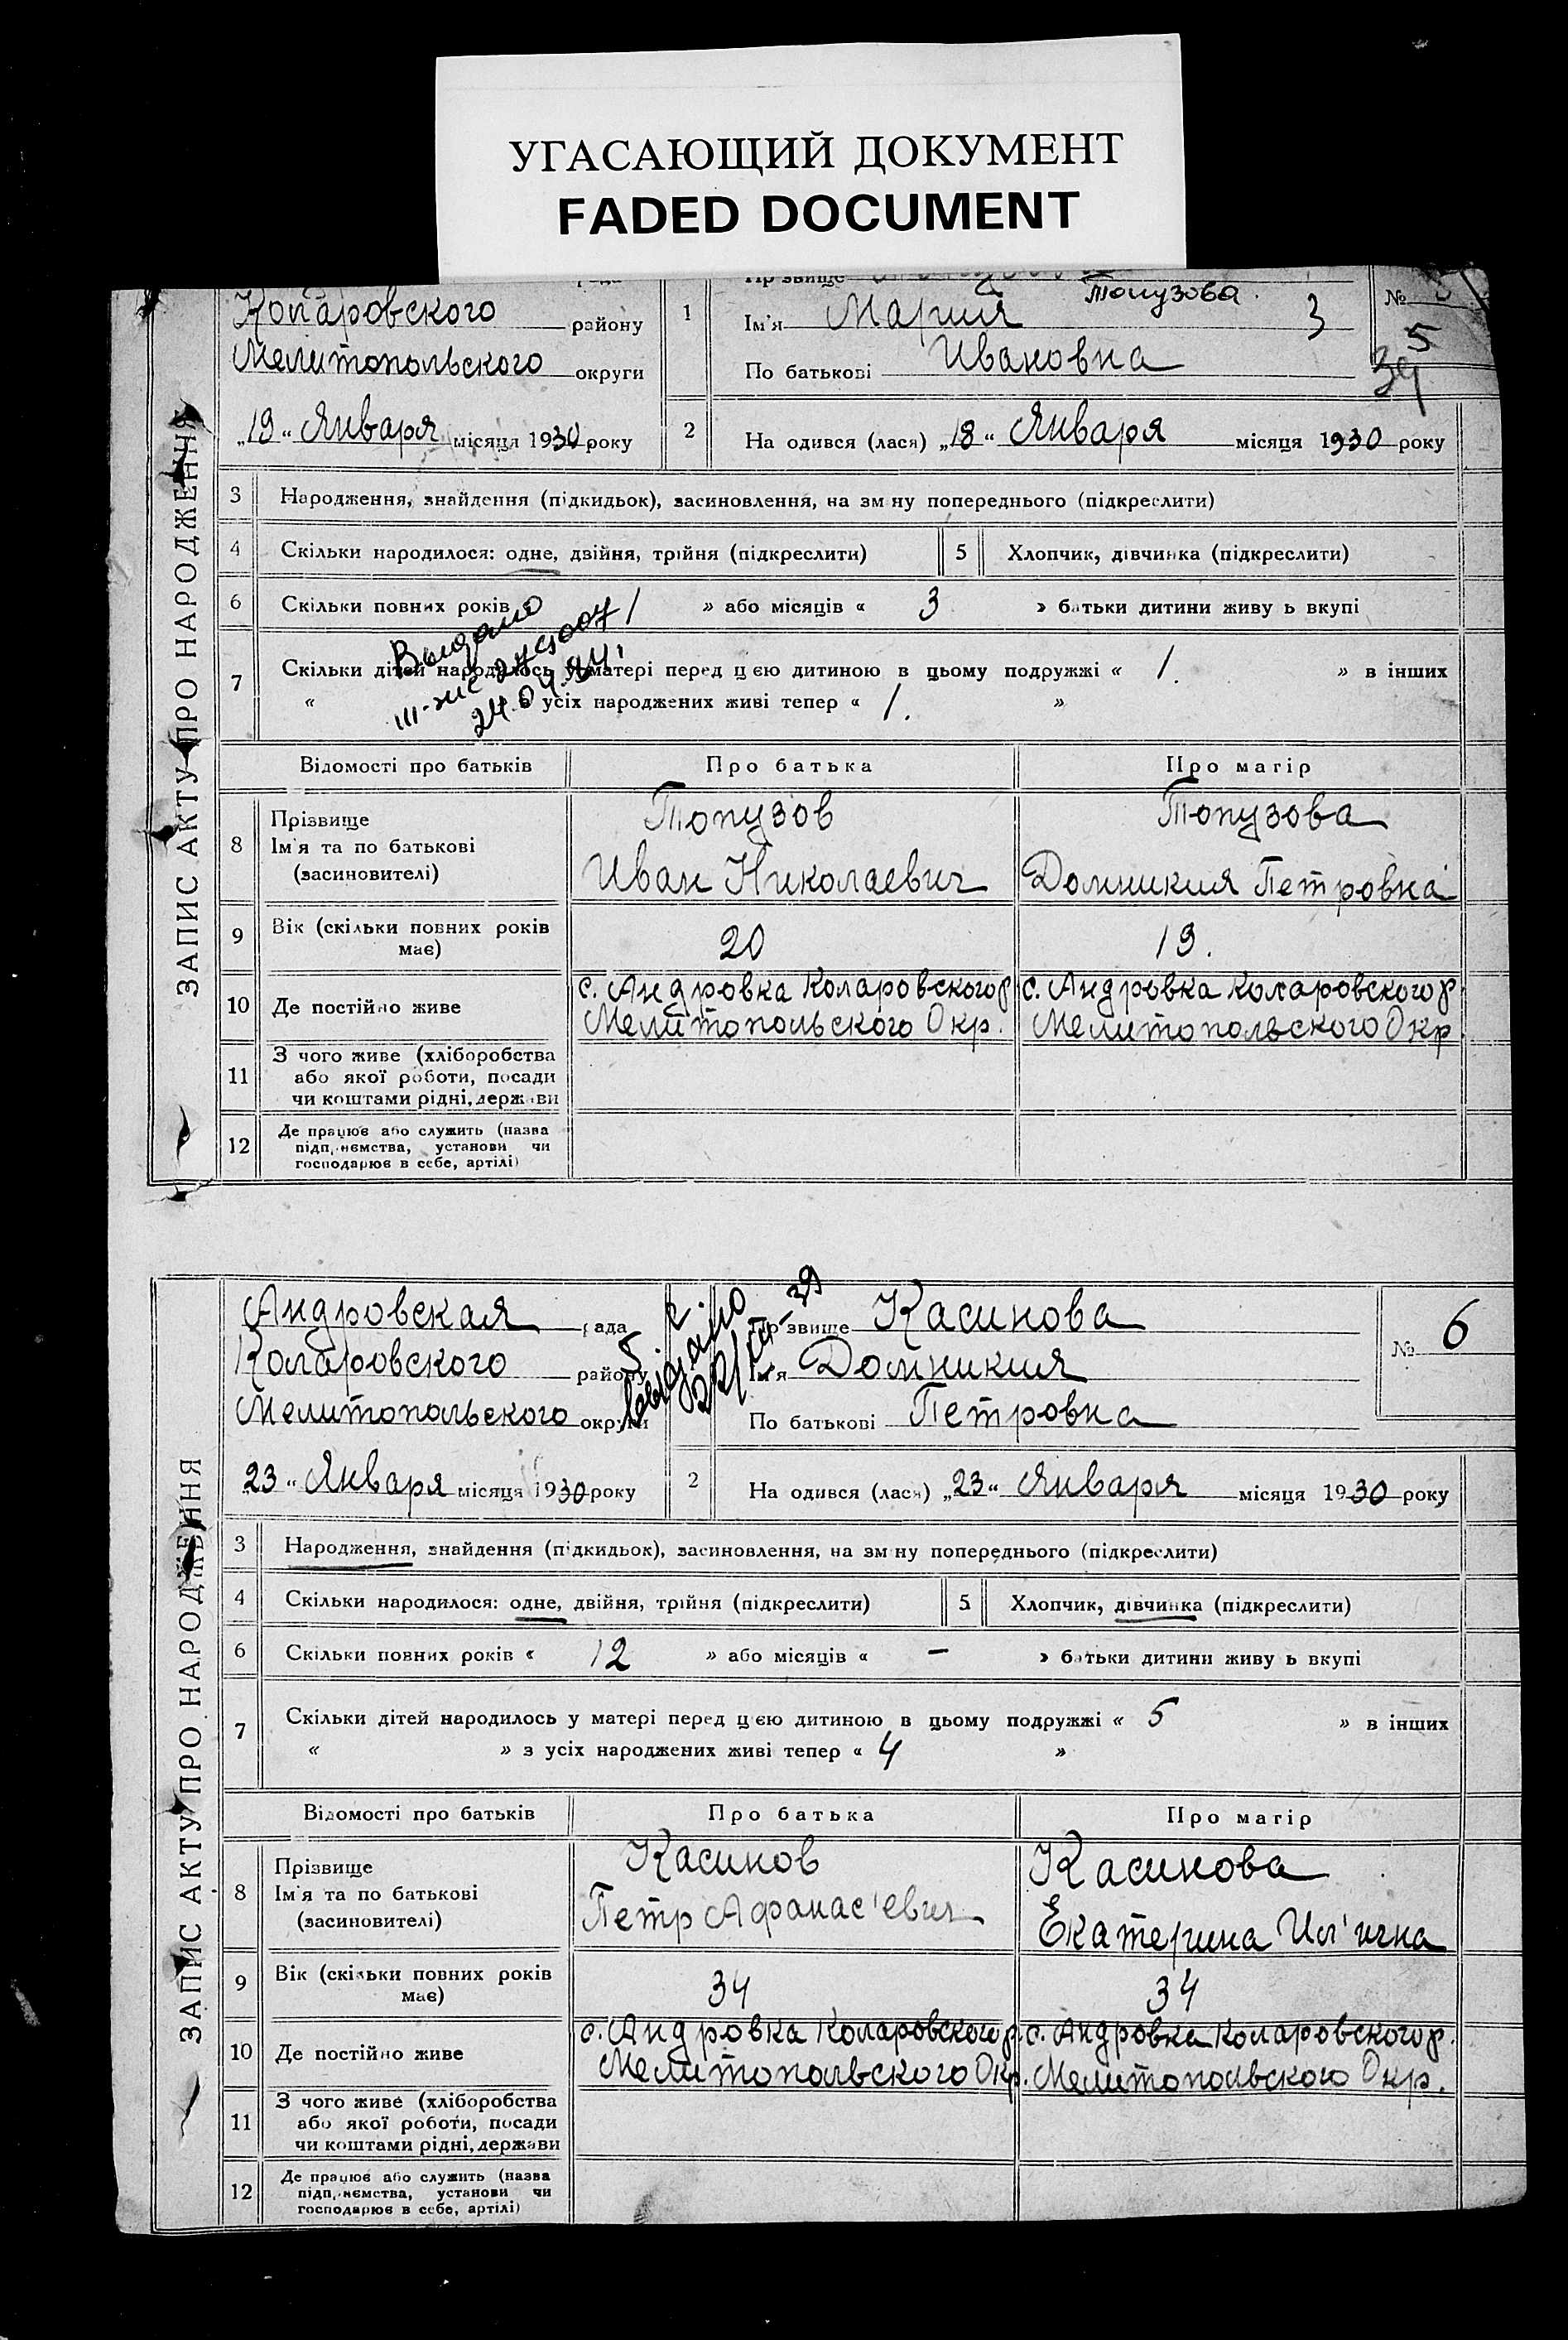 УГАСАЮЩИЙ ДОКУМЕНТ
FADED DOCUMENT
ЗАПИС АКТУ ПРО НАРОДЖЕННЯ
Коларовского району
Мелитопольского округи
„19“ Января місяця 1930 року
1
Топузова
Ім'я Мария 3
По батькові Ивановна
№
5
39
2 На одився (лася) „18“ Января місяця 1930 року
3 Народження, знайдення (підкидьок), засиновлення, на зм ну попереднього (підкреслити)
4 Скільки народилося: одне, двійня, трійня (підкреслити) 5 Хлопчик, дівчинка (підкреслити)
6 Скільки повних років » або місяців « 3 » батьки дитини живу ь вкупі
Выдано
24.04.
7 Скільки дітей народилось у матері перед цією дитиною в цьому подружжі « 1. » в інших
« з усіх народжених живі тепер « 1. »
Відомості про батьків Про батька Про матір
8 Прізвище Ім'я та по батькові (засновителі)
Топузов Топузова
Иван Николаевич Домникия Петровна
9 Вік (скільки повних років має) 20 19.
10 Де постійно живе
с. Андровка Коларовского р. с. Андровка Коларовского р.
Мелитопольского Окр. Мелитопольского Окр
11 З чого живе (хліборобства
або якої роботи, посади
чи коштами рідні, держави
12 Де працює або служить (назва
підп. иємства, установи чи
господарює в себе, артілі)
ЗАПИС АКТУ ПРО НАРОДЖЕННЯ
Андровская рада
Коларовского району
Мелитопольского округи
23 “ Января місяця 1930 року
Пр звище Касинова
Ім'я Домникия
По батькові Петровна
№ 6
2 На одився (лася) „23“ Января місяця 1930 року
3 Народження, знайдення (підкидьок), засиновлення, на зм ну попереднього (підкреслити)
4 Скільки народилося: одне, двійня, трійня (підкреслити) 5 Хлопчик, дівчинка (підкреслити)
6 Скільки повних років « 12 » або місяців « – » батьки дитини живу ь вкупі
7 Скільки дітей народилось у матері перед цією дитиною в цьому подружжі « 5 » в інших
« » з усіх народжених живі тепер « 4 »
Відомості про батьків Про батька Про матір
8 Прізвище
Ім'я та по батькові
(засиновителі)
Касинов Касинова
Петр Афанас'евич Екатерина Ил'ична
9 Вік (скільки повних років
має)
34 34
10 Де постійно живе
с. Андровка Коларовского р. с. Андровка Коларовского р.
Мелитопольского Окр. Мелитопольского Окр.
11 З чого живе (хліборобства
або якої роботи, посади
чи коштами рідні, держави
12 Де працює або служить (назва
підп. иємства, установи чи
господарює в себе, артілі)